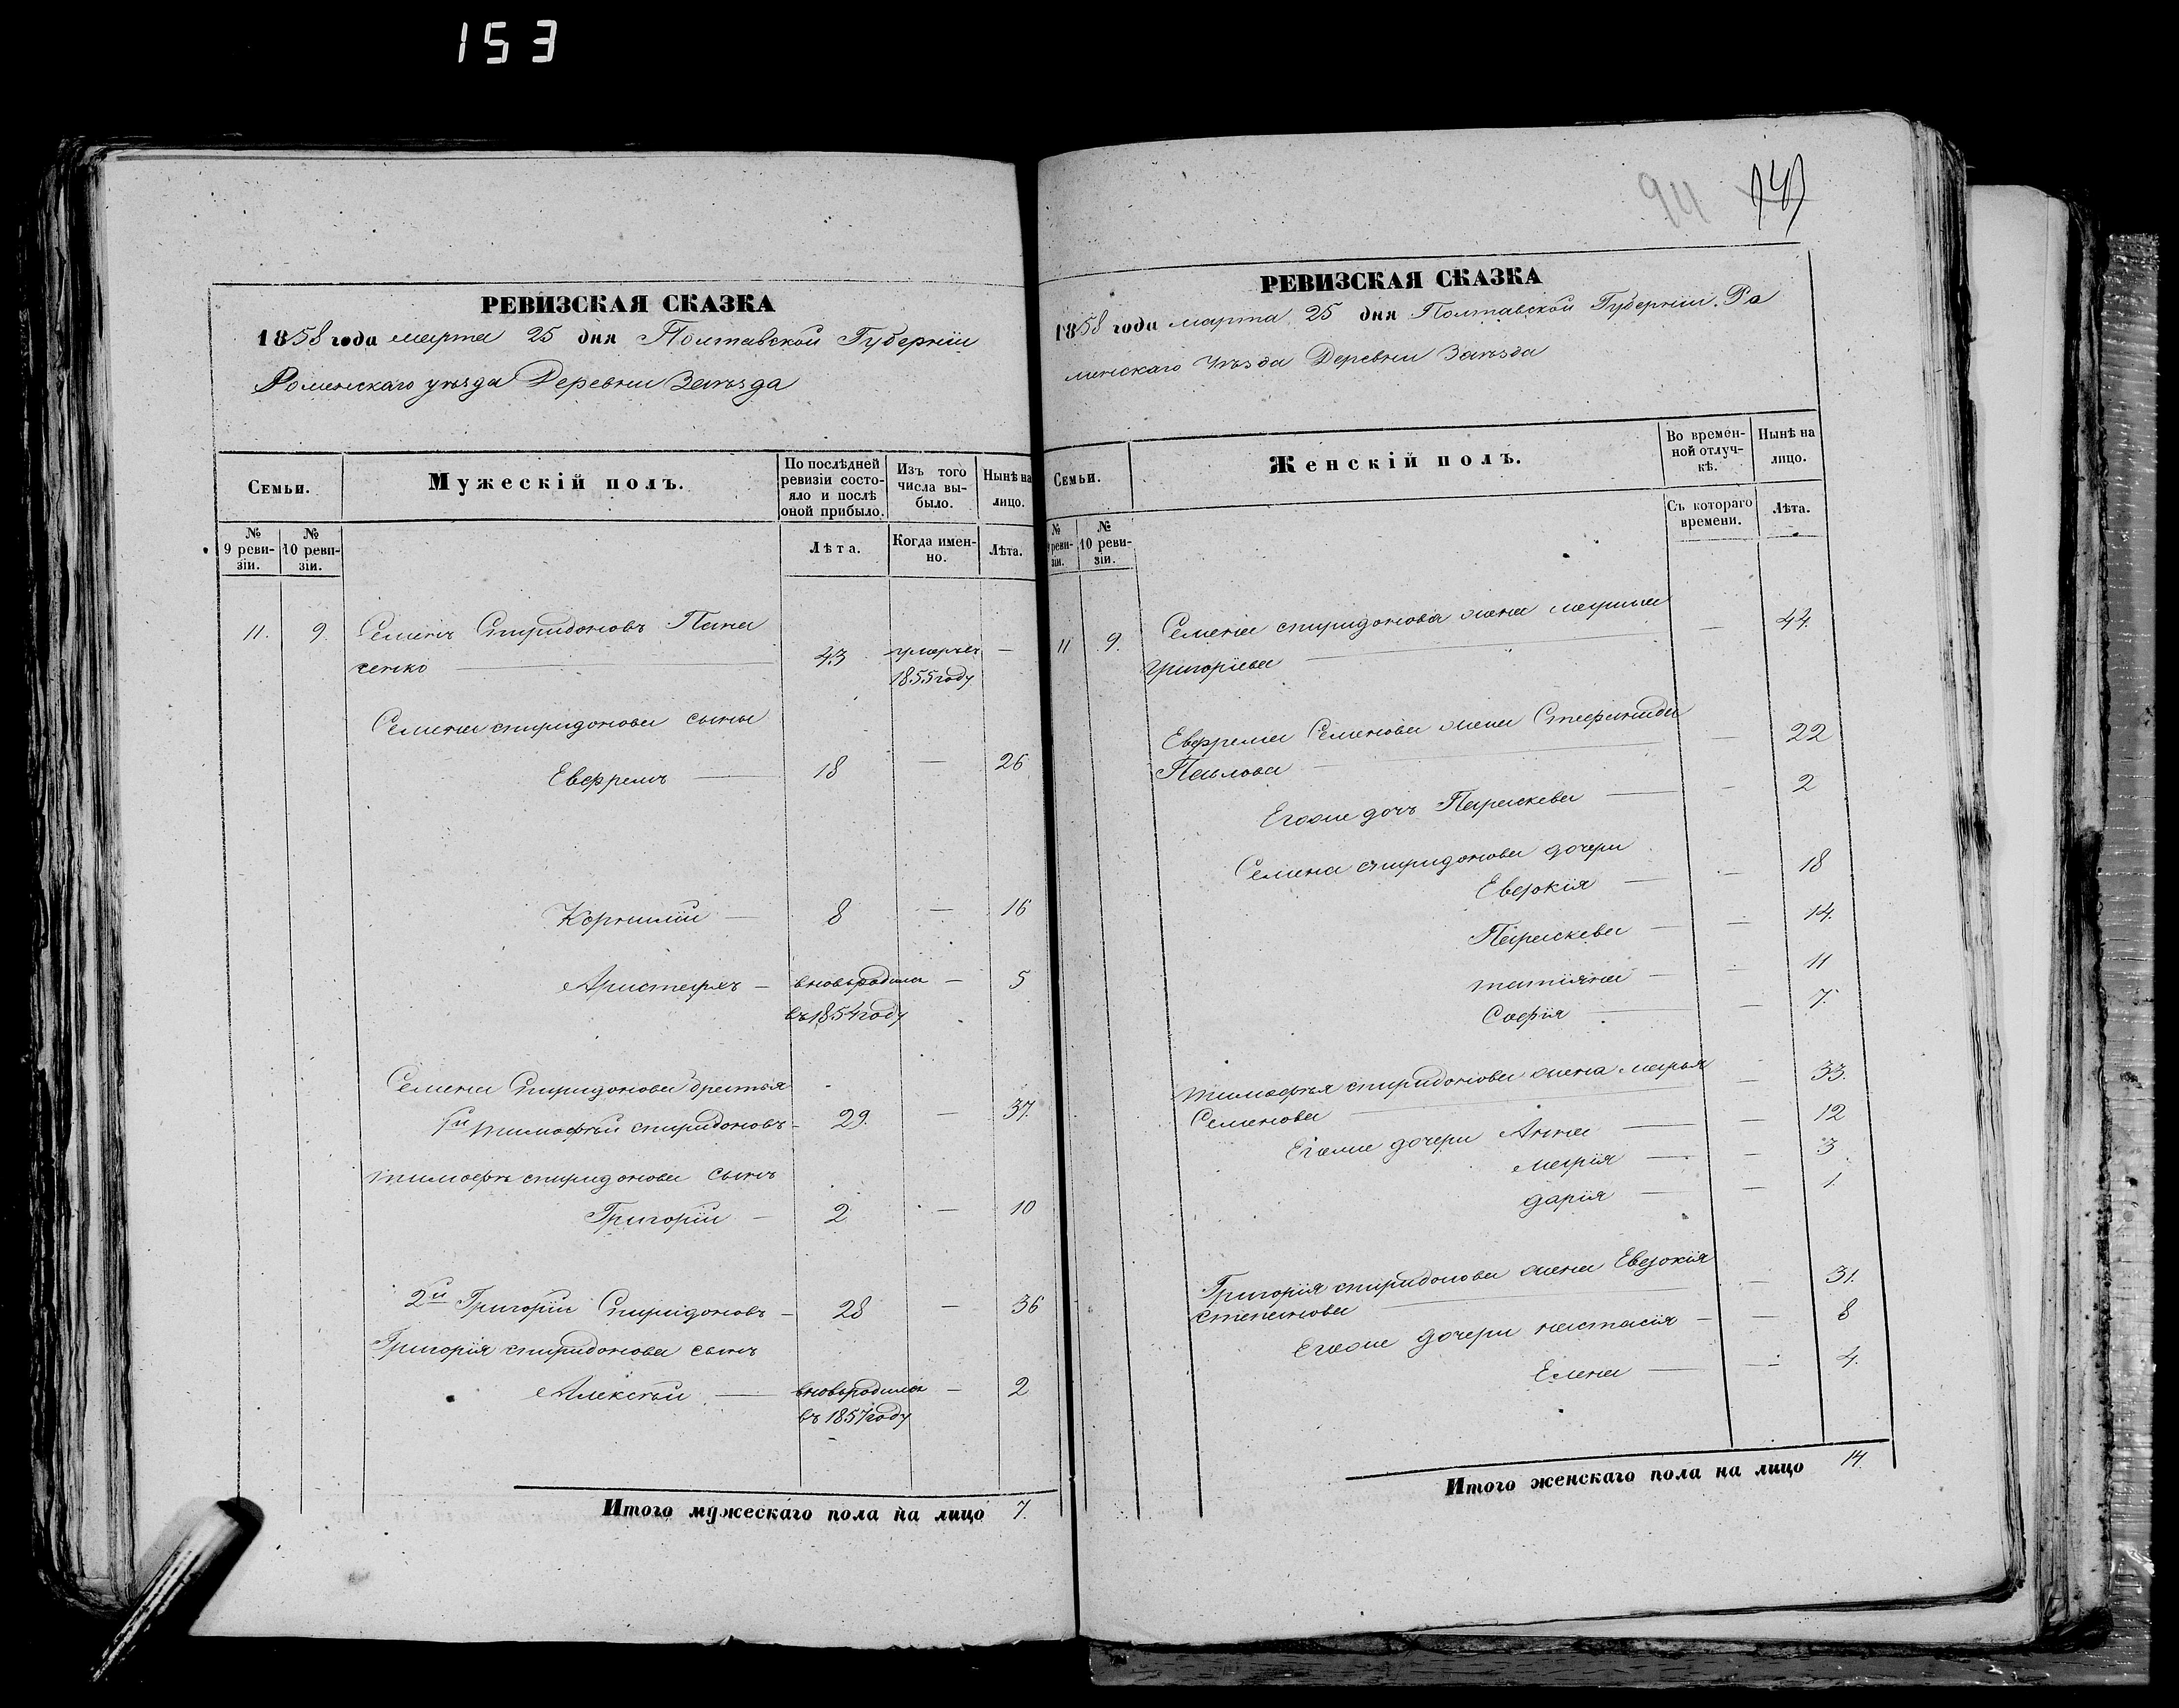 153
РЕВИЗСКАЯ СКАЗКА
1858 года марта 25 дня Полтавской Губерніи
Роменскаго уѣзда Деревни Заѣзда
Семьи.
Мужескій полъ.
По послѣдней ревизіи состояло и послѣ оной прибыло.
Изъ того числа выбыло.
Нынѣ на лицо.
№ 9 ревизіи.
№ 10 ревизіи.
Лѣта.
Когда именно.
Лѣта.
11. 9. Семенъ Спиридоновъ Пана
ченко — 43 умеръ въ —
1855 году
Семена спиридонова сыны
Евфремъ — 18 — 26
Корнилій — 8 — 16
Аристархъ — вновьродился — 5
въ 1854 году
Семена Спиридонова братья
1й тимофѣй спиридоновъ — 29. — 37.
тимофѣя спиридонова сынъ
Григорій — 2 — 10
2й Григорій Спиридоновъ — 28 — 36
Григорія спиридонова сынъ
Алексѣй — вновьродился — 2
въ 1857 году
Итого мужескаго пола на лицо 7.
94
РЕВИЗСКАЯ СКАЗКА
1858 года марта 25 дня Полтавской Губерніи. Ро
менскаго Уѣзда Деревни Заѣзда
Семьи.
Женскій полъ.
Во временной отлучкѣ.
Нынѣ на лицо.
№ 9 ревизіи.
№ 10 ревизіи.
Съ котораго времени.
Лѣта.
11 9. Семена спиридонова жена марина
григоріева — — 44.
Евфрема Семенова жена Стефанида
Павлова — — 22
Егоже дочь Параскева — — 2
Семена спиридонова дочери
Евдокія — — 18
Параскева — — 14.
татіяна — — 11
Софія — — 7.
тимофѣя спиридонова жена марья
Семенова — — 33.
Егоже дочери Анна — — 12
марія — — 3
дарія — — 1.
Григорія спиридонова жена Евдокія
степанова — — 31.
Егоже дочери настасія — — 8
Елена — — 4.
Итого женскаго пола на лицо 14